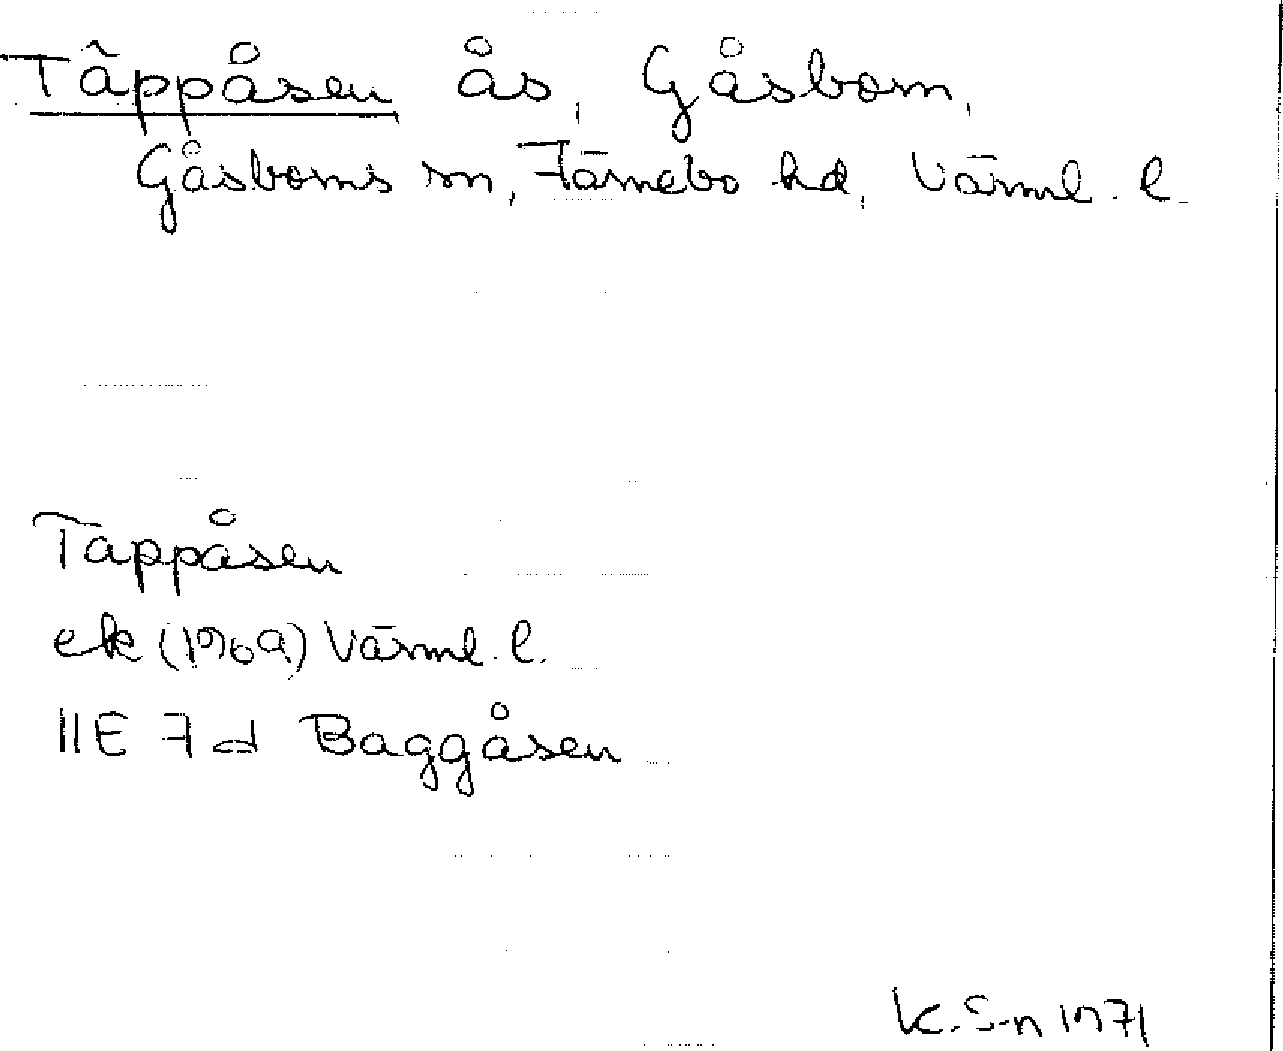 Täppåsen ås, Gåsborn,
Gåsborns sn, Färnebo hd, Värml. l.
Tappåsen
ek (1969) Värml. l.
11E 7d Baggåsen
K. S-n 1971